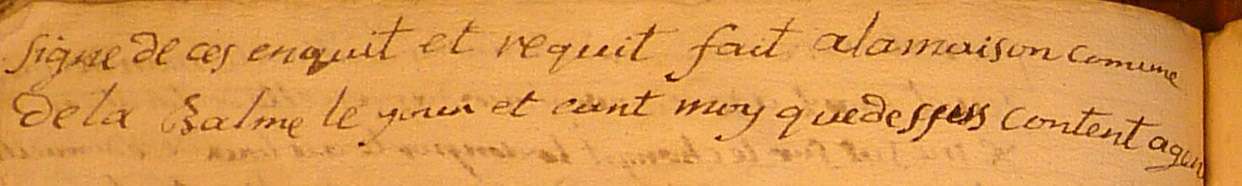 signe de ces enquit et requit fait alamaison comune
dela Balme le jour et eant moy quedessus Content agen